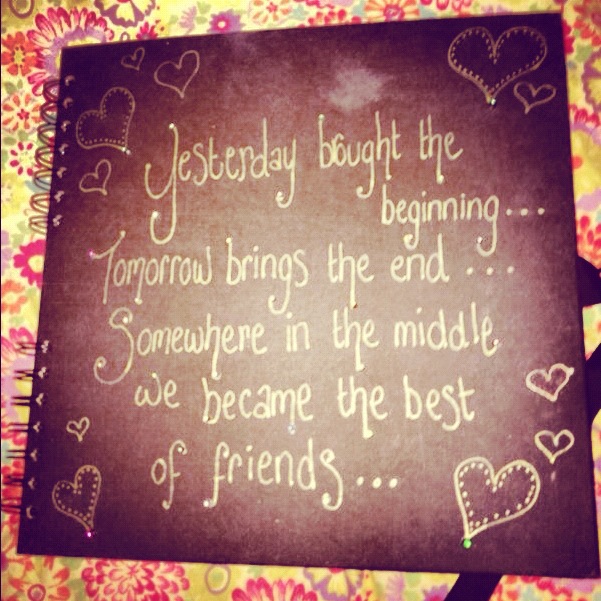 Yesterday bought the
beginning...
Tomorrow brings the end ...
Somewhere in the middle
we became the best
of friends...